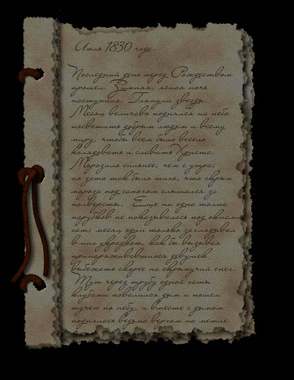 Июля 1830 года
Последний день перед Рождеством
прошел. Зимняя, ясная ночь
поступила. Глянули звезды.
Месяц величаво поднялся на небо
посветить добрым людям и всему
миру, чтобы всем было весело
колядовать и славить Христа.
Морозило сильнее, чем с утра;
но зато так было тихо, что скрып
мороза под сапогом слышался за
полверсты. Еще ни одна толпа
парубков не показывалась под окнами
хат; месяц один только заглядывал
в них украдкою, как бы вызывая
принаряживавшихся девушек
выбежать скорее на скрыпучий снег.
Тут через трубу одной хаты
клубами повалился дым и пошел
тучею по небу, и вместе с дымом
поднялась ведьма верхом на метле.